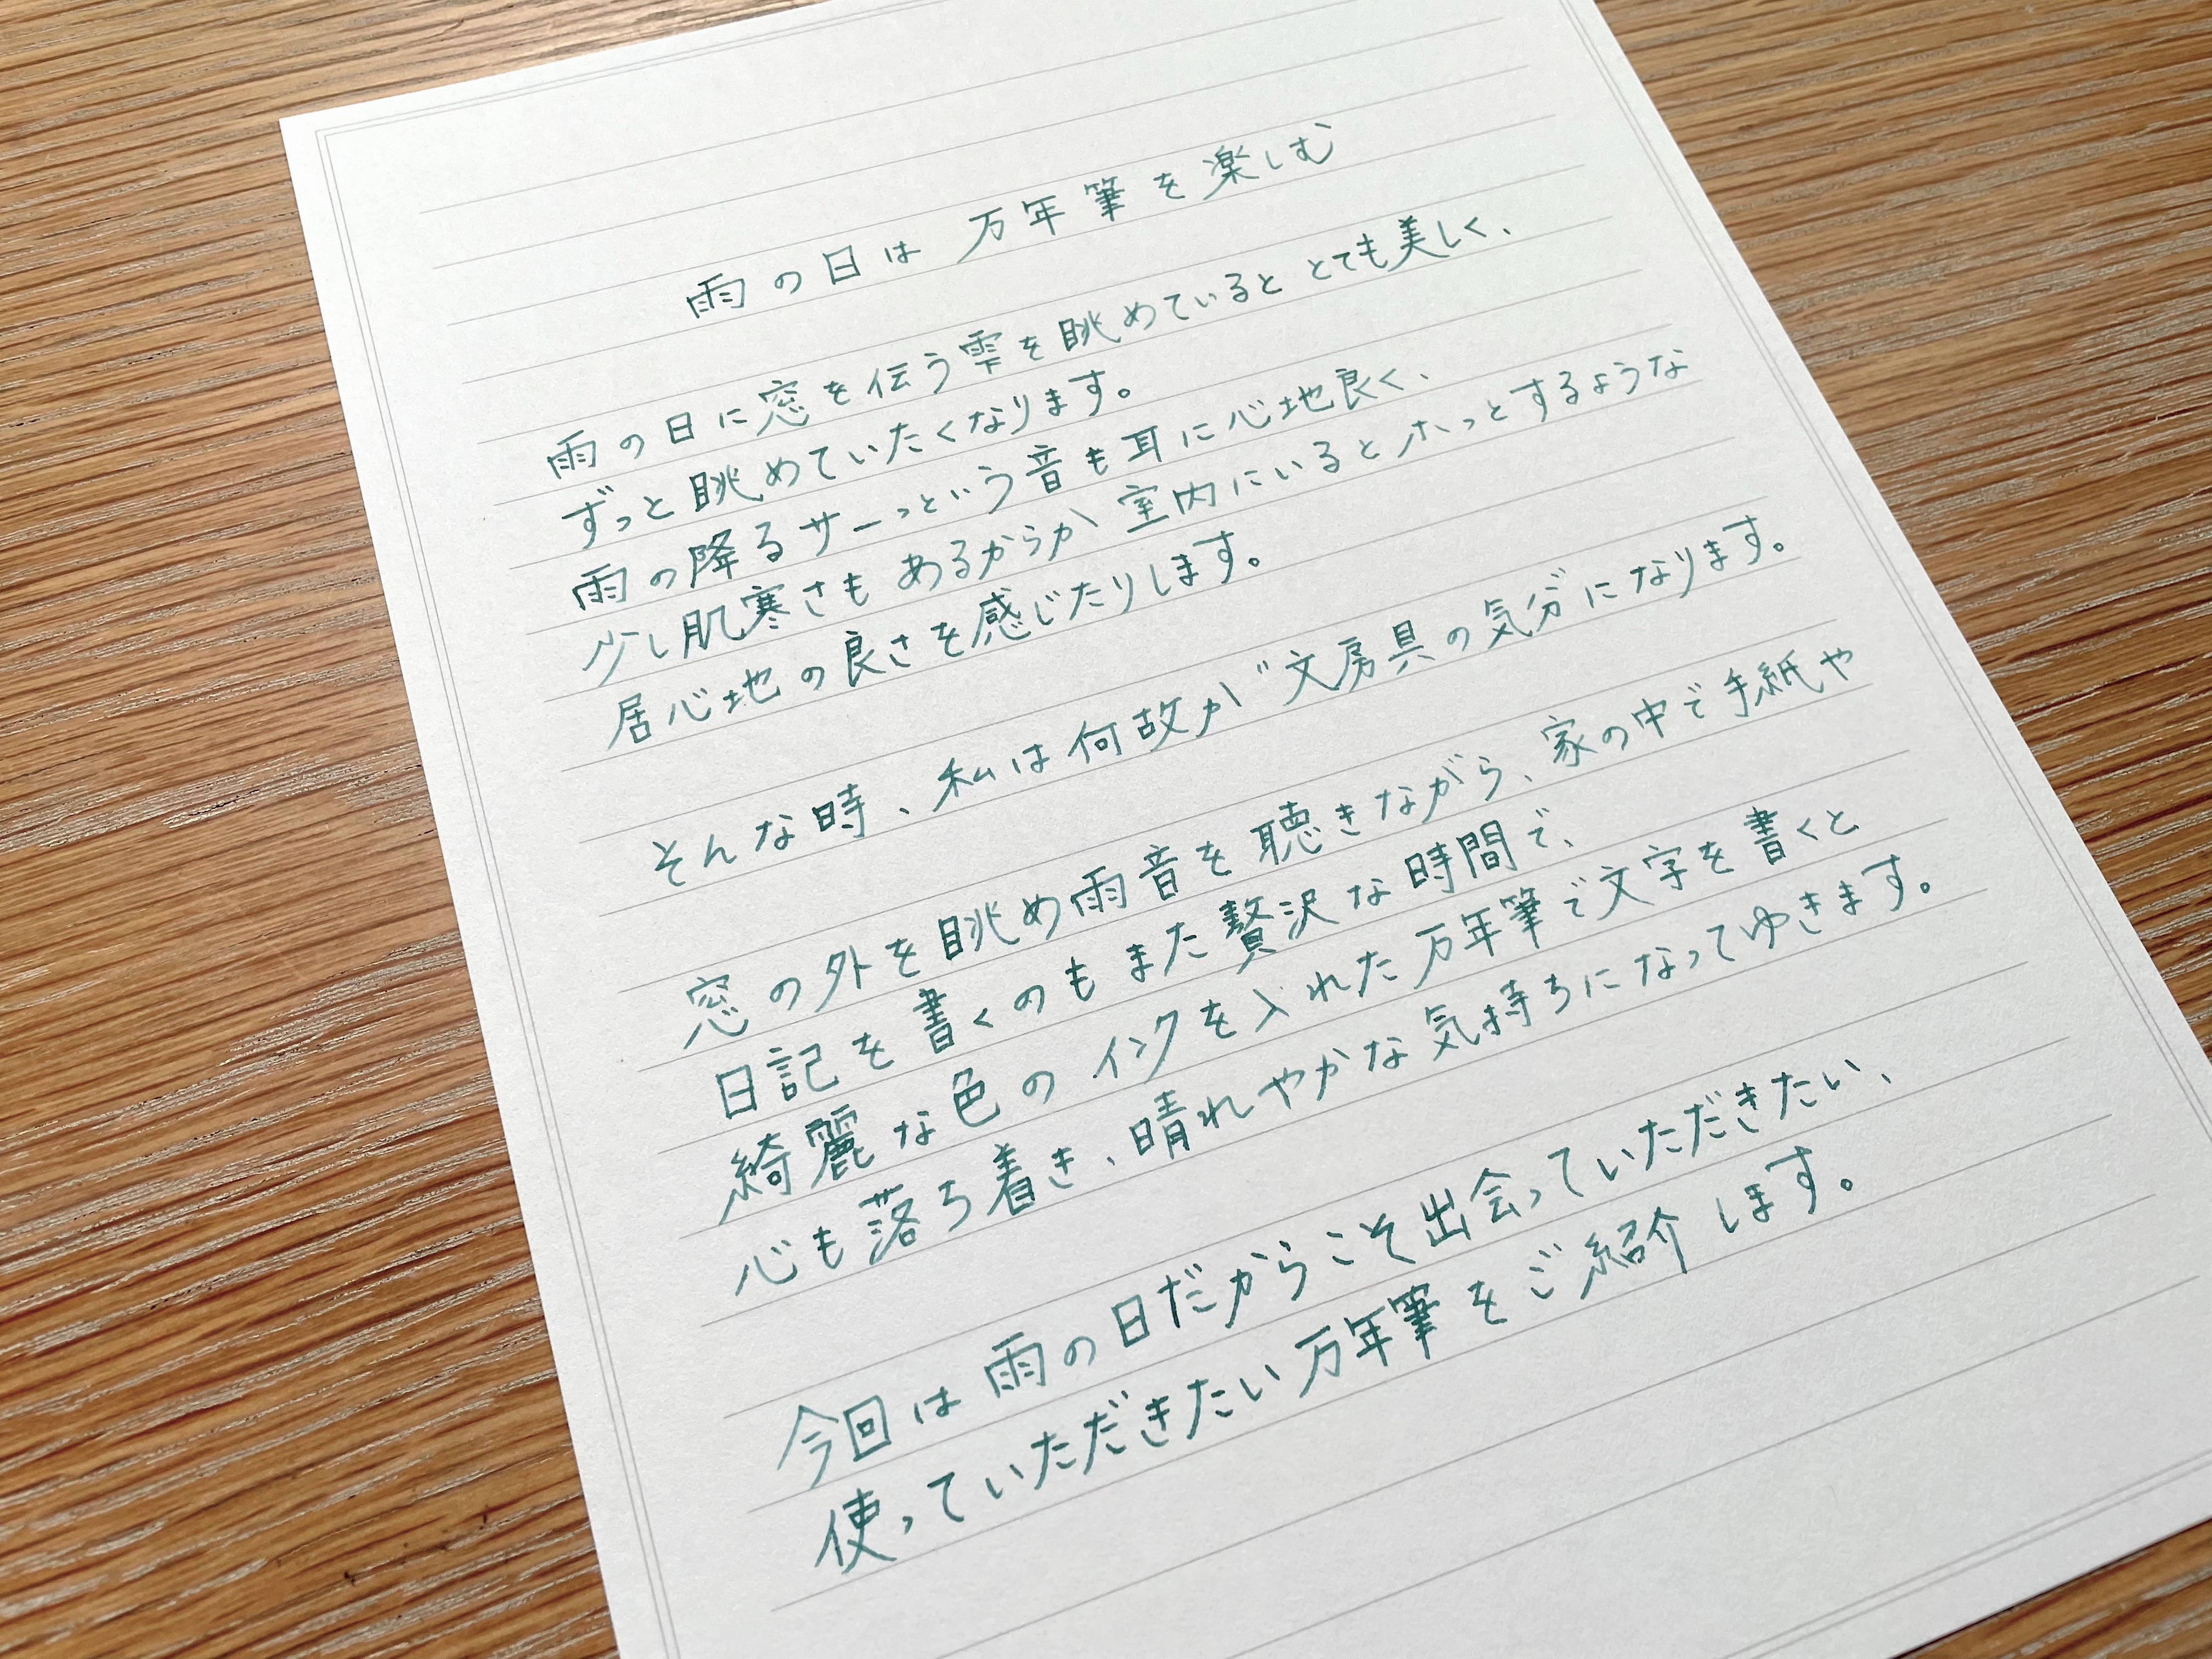 雨の日は 万年筆を楽しむ
雨の日に窓を伝う雫を眺めていると とても美しく、
ずっと眺めていたくなります。
雨の降るサーっという音も耳に心地良く、
少し肌寒さも あるからか 室内にいるとホッとするような
居心地の良さを感じたりします。
そんな時、私は何故か〝文房具の気分になります。
窓の外を眺め雨音を聴きながら、家の中で手紙や
日記を書くのもまた贅沢な時間で、
綺麗な色のインクを入れた万年筆で文字を書くと
心も落ち着き、晴れやかな気持ちになってゆきます。
今回は雨の日だからこそ出会っていただきたい、
使っていただきたい万年筆をご紹介します。